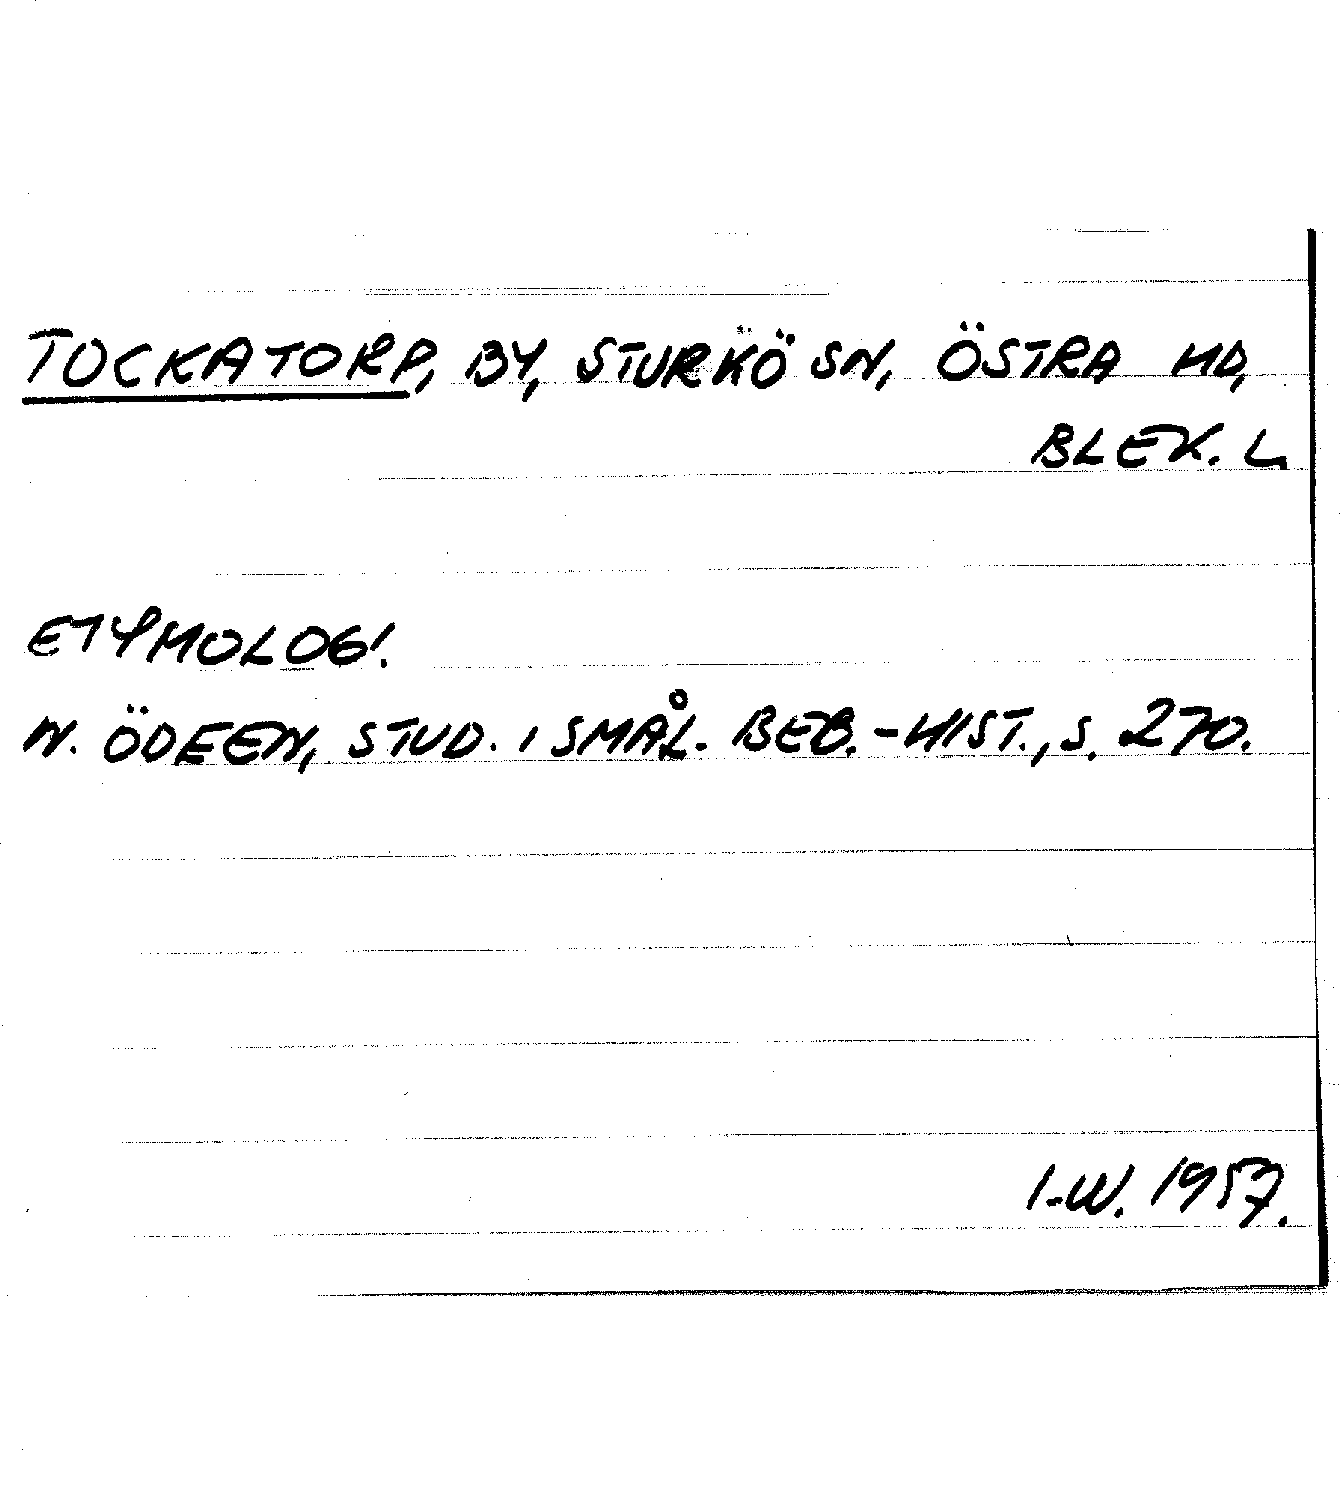 TOCKATORP, BY, STURKÖ SN, ÖSTRA HD,
BLEK. L.
ETYMOLOGI.
N. ÖDEEN, STUD. I SMÅL. BEB.-HIST., S. 270.
I-W. 1957.